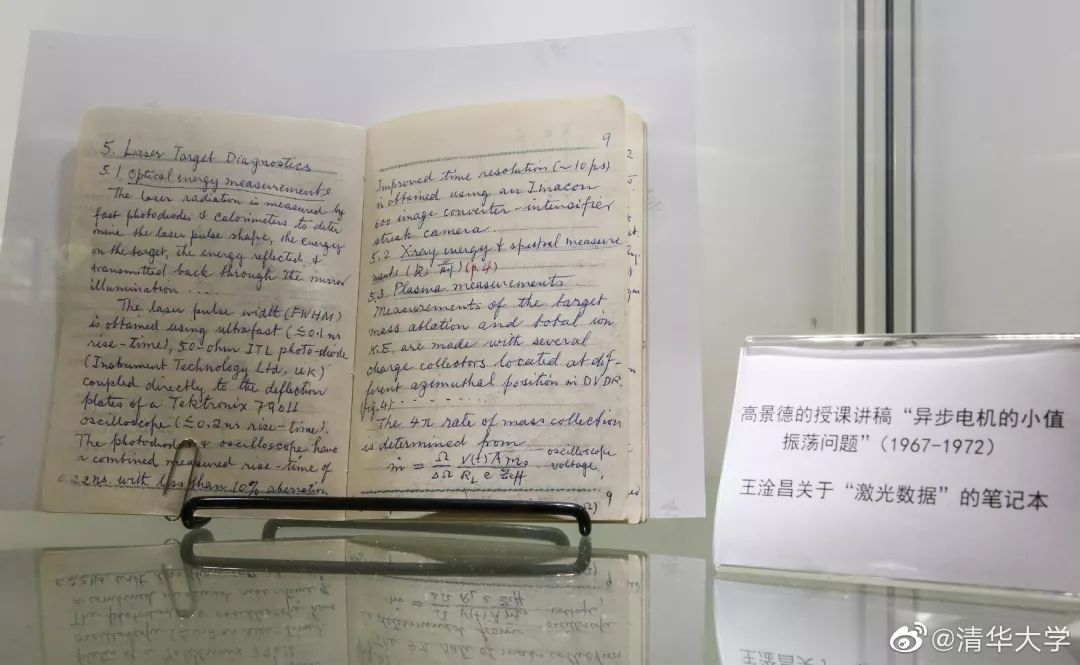 5. Laser Target Diagnostics
5.1 Optical energy measurements
The laser radiation is measured by
fast photodiodes & calorimeters to deter
mine the laser pulse shape, the energy
on the target, the energy reflected &
transmitted back through the mirror
illumination .....
The laser pulse width (FWHM)
is obtained using ultrafast (≦0.1 ns
rise-time), 50-ohm ITL photo-diode
(Instrument Technology Ltd, UK)
coupled directly to the deflection
plates of a Tektronix 7904
oscilloscope (≦0.2ns rise-time).
The photodiode & oscilloscope have
a combined measured rise-time of
0.22ns with less than 10% aberration
9
Improved time resolution (~10 ps)
is obtained using an Imacon
600 image converter-intensifier
streak camera
5.2 X-ray energy & spectral measure
ments (p.4)
5.3. Plasma measurements
Measurements of the target
mass ablation and total ion
K.E. are made with several
charge collectors located at dif-
ferent azimuthal position in DVDR
fig.4).
The 4π rate of mass collection
is determined from
oscilloscope
ṁ = Ω/ΔΩ V(t) A m₀/R_L e Z_eff voltage,
9
高景德的授课讲稿“异步电机的小值
振荡问题”(1967-1972)
王淦昌关于“激光数据”的笔记本
@清华大学